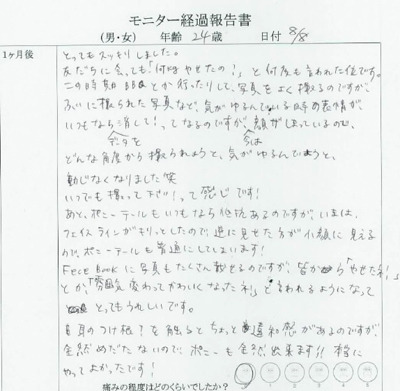 モニター経過報告書
(男・女) 年齢 24歳 日付 8/8
1ヶ月後
とってもスッキリしました。
友だちに会っても「何kgやせたの!」と何度も言われた位です。
この時期BBQとか行ったりして、写真をよく撮るのですが、
ふいに撮られた写真など、気がゆるんでいる時の表情が、
いつもなら消して!ってなるのですが、顔がしまっているので、
データを 今は
どんな角度から撮られようと、気がゆるんでいようと、
動じなくなりました笑
いつでも撮って下さい!って感じです!
あと、ポニーテールもいつもなら抵抗あるのですが、いまは、
フェイスラインがキリッとしたので、逆に見せた方が小顔に見える
ので、ポニーテールも普通にしてしまいます!
FeceBookに写真もたくさん載せるのですが、皆から「やせたネ」
とか「雰囲気変わってかわいくなったネ」と言われるようになって
とってもうれしいです。
耳のつけ根?を触るとちょっと違和感があるのですが、
全然めだたないので、ポニーも全然出来ます!!本当に
やってよかったです!
痛みの程度はどのくらいでしたか?